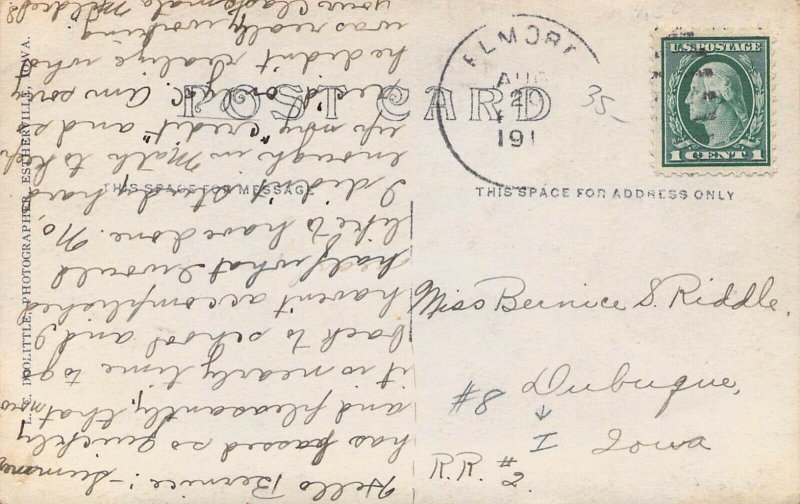 POST CARD
THIS SPACE FOR MESSAGE
THIS SPACE FOR ADDRESS ONLY
L. E. DOOLITTLE, PHOTOGRAPHER, ESTHERVILLE, IOWA.
ELMORE
AUG
29
191
35-
U.S. POSTAGE
1 CENT 1
Miss Bernice S. Riddle.
Dubuque,
#8
I
Iowa
R.R. #2.
Hello Bernice:- Summer
has passed so quickly
and pleasantly, that
it is nearly time to go
back to school and I
haven't accomplished
half what I would
like to have done. No,
I didn't study hard
enough in Math to keep
up my "credit" and so
he didn't realize who
was really working
your classmate Mildred.